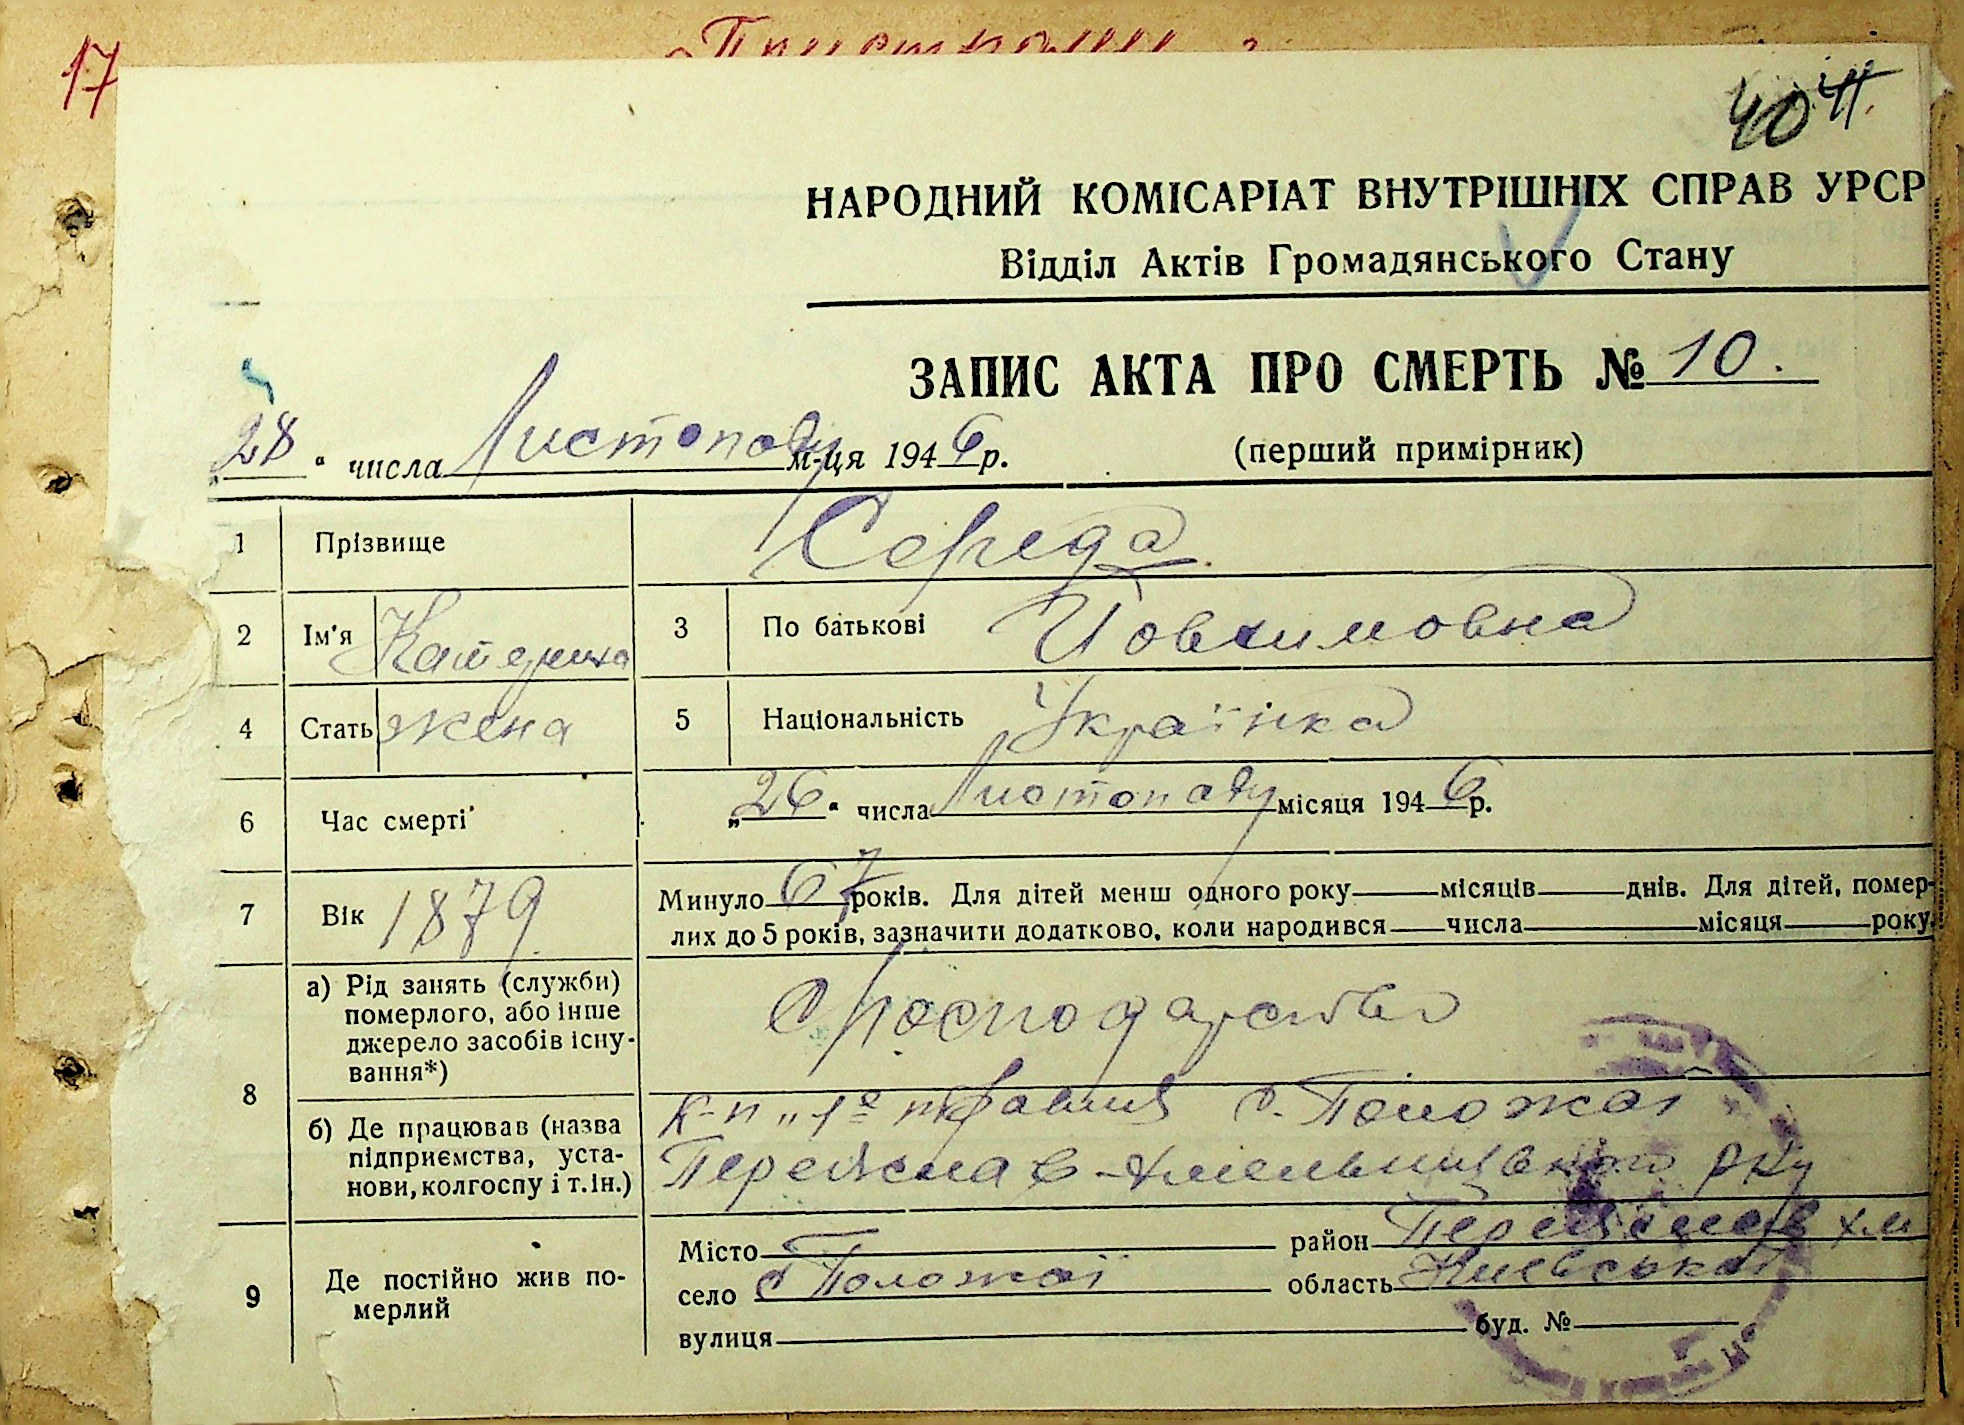 17
40
НАРОДНИЙ КОМІСАРІАТ ВНУТРІШНІХ СПРАВ УРСР
Відділ Актів Громадянського Стану
ЗАПИС АКТА ПРО СМЕРТЬ № 10.
„28“ числа Листопаду м-ця 1946 р.
(перший примірник)
1 Прізвище Середа
2 Ім'я Катерина 3 По батькові Йовхимовна
4 Стать жена 5 Національність Українка
6 Час смерті „26“ числа Листопаду місяця 1946 р.
7 Вік 1879 Минуло 67 років. Для дітей менш одного року місяців днів. Для дітей, помер-
лих до 5 років, зазначити додатково, коли народився числа місяця року.
8 а) Рід занять (служби)
померлого, або інше
джерело засобів існу-
вання*)
Господарство
б) Де працював (назва
підприємства, уста-
нови, колгоспу і т. ін.)
к-п „1е травня с. Положаї
Переяслав-Хмельницького р-ну
9 Де постійно жив по-
мерлий
Місто район Переяслав Хм
село с Положаї область Київської
вулиця буд. №